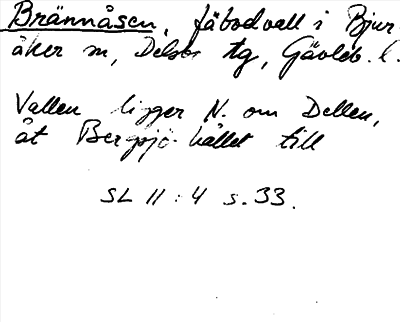 Brännåsen, fäbodvall i Bjur-
åker sn, Delsbo tg, Gävleb. l.
Vallen ligger N. om Dellen,
åt Bergsjö-hållet till
SL II:4 s. 33.